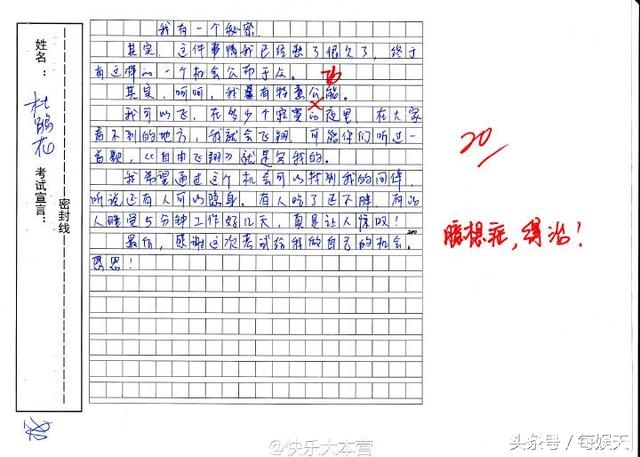 我有一个秘密.
其实，这件事情我已经憋了很久了，终于
有这样的一个机会公布于众。
其实，呵呵，我是有特意公能。
功
我可以飞，在多少个寂寞的夜里，在大家
看不到的地方，我就会飞翔，可能你们听过一
首歌，《自由飞翔》就是写我的。
我希望通过这个机会可以找到我的同伴，
听说还有人可以隐身。有人吃了还不胖，有的
人睡觉5分钟工作好几天，真是让人惊叹！
最后，感谢这次考试给我做自己的机会.
200
恩恩！
姓名：
杜
考试宣言：
密封线
20
臆想症，得治！
@快乐大本营
头条号/每娱天